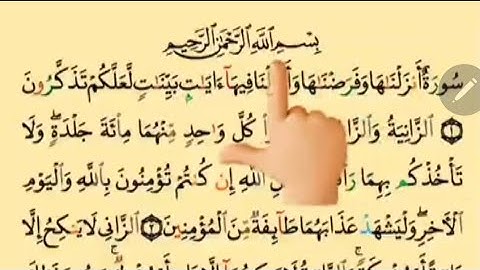 بِسْمِ ٱللَّهِ ٱلرَّحْمَٰنِ ٱلرَّحِيمِ
سُورَةٌ أَنزَلْنَٰهَا وَفَرَضْنَٰهَا فِيهَآ ءَايَٰتٍۭ بَيِّنَٰتٍ لَّعَلَّكُمْ تَذَكَّرُونَ
١ ٱلزَّانِيَةُ كُلَّ وَٰحِدٍ مِّنْهُمَا مِا۟ئَةَ جَلْدَةٍ ۖ وَلَا
تَأْخُذْكُم بِهِمَا ٱللَّهِ إِن كُنتُمْ تُؤْمِنُونَ بِٱللَّهِ وَٱلْيَوْمِ
ٱلْءَاخِرِ ۖ وَلْيَشْهَدْ عَذَابَهُمَا طَآئِفَةٌ مِّنَ ٱلْمُؤْمِنِينَ ٢ ٱلزَّانِى لَا يَنكِحُ إِلَّا